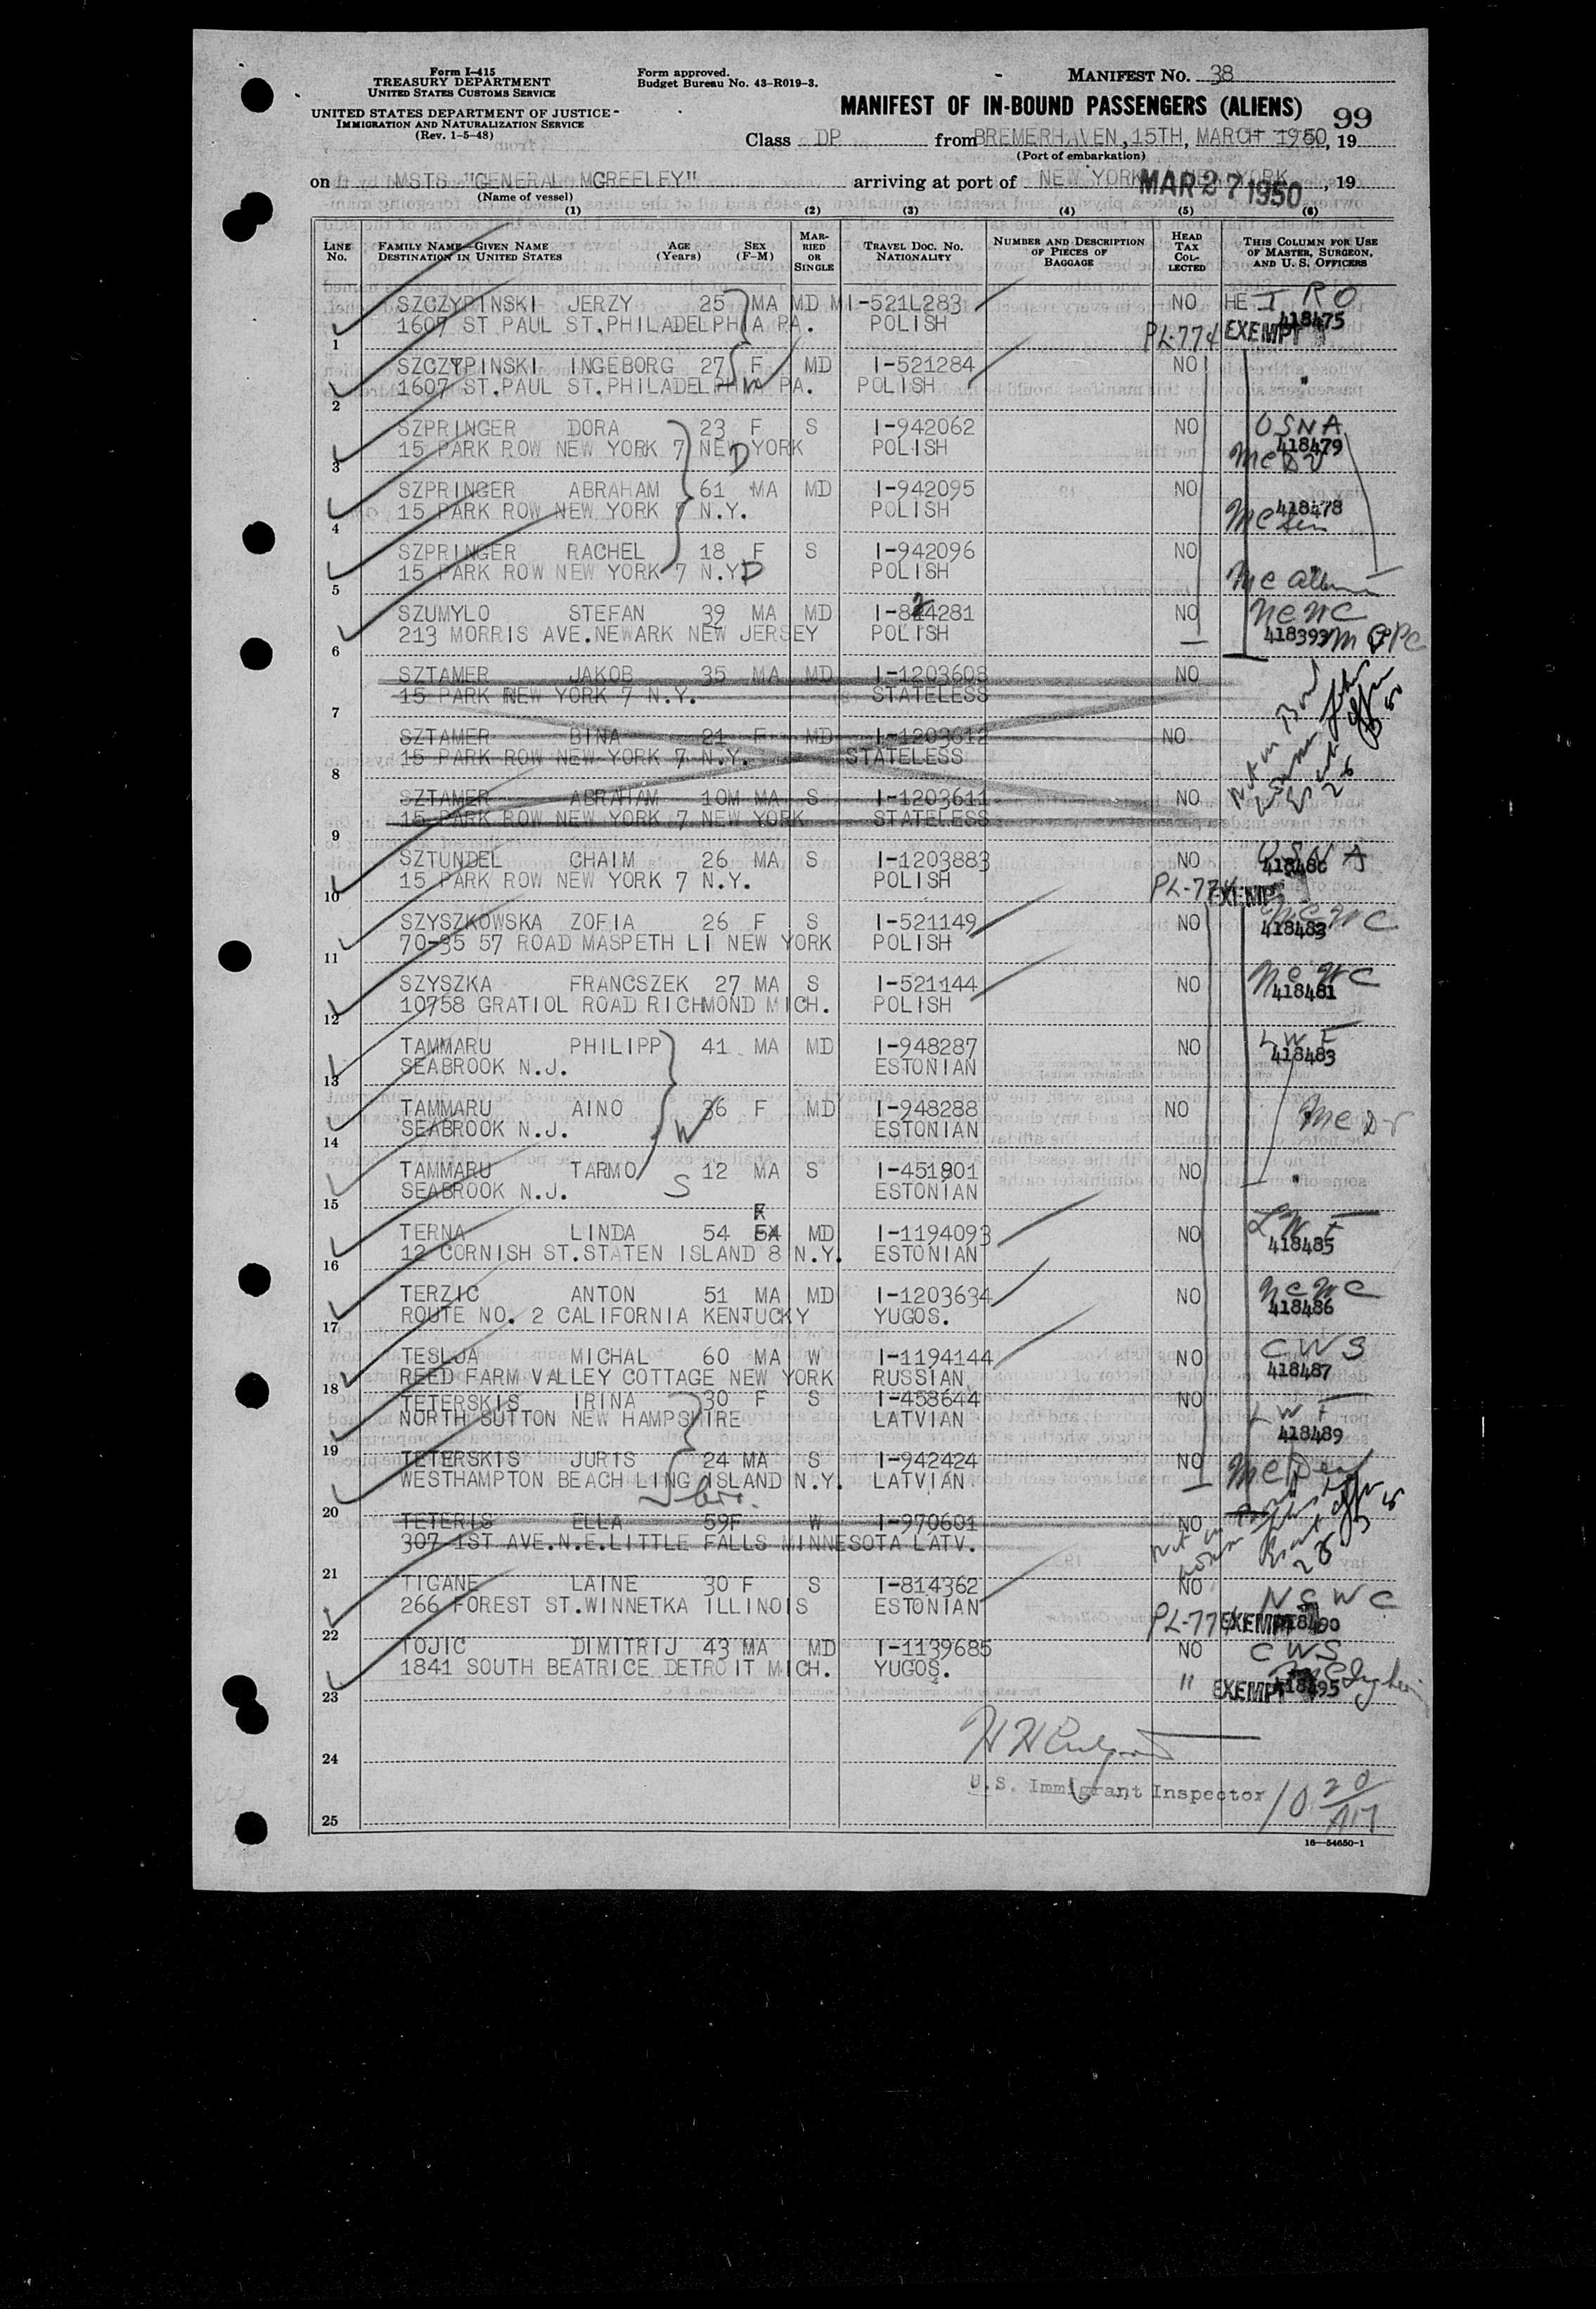 Form I-415
TREASURY DEPARTMENT
UNITED STATES CUSTOMS SERVICE
UNITED STATES DEPARTMENT OF JUSTICE
IMMIGRATION AND NATURALIZATION SERVICE
(Rev. 1-5-48)
Form approved.
Budget Bureau No. 43-R019-3.
MANIFEST NO. 38
MANIFEST OF IN-BOUND PASSENGERS (ALIENS) 99
Class DP from BREMERHAVEN, 15TH, MARCH 1950, 19
(Port of embarkation)
on MSTS "GENERAL MGREELEY" arriving at port of NEW YORK MAR 27 1950, 19
(Name of vessel)
(1) (2) (3) (4) (5) (6)
LINE No. FAMILY NAME—GIVEN NAME DESTINATION IN UNITED STATES AGE (Years) SEX (F-M) MARRIED OR SINGLE TRAVEL DOC. NO. NATIONALITY NUMBER AND DESCRIPTION OF PIECES OF BAGGAGE HEAD TAX COLLECTED THIS COLUMN FOR USE OF MASTER, SURGEON, AND U. S. OFFICERS
SZCZYPINSKI JERZY 25 MA MD MI-521L283 NO HE I R O
1607 ST PAUL ST.PHILADELPHIA PA. POLISH PL-774 EXEMPT 418475
1
SZCZYPINSKI INGEBORG 27 F MD I-521284 NO "
1607 ST.PAUL ST.PHILADELPHIA PA. POLISH W
2
SZPRINGER DORA 23 F S I-942062 NO USNA
15 PARK ROW NEW YORK 7 NEW YORK POLISH D 418479
3
SZPRINGER ABRAHAM 61 MA MD I-942095 NO
15 PARK ROW NEW YORK 7 N.Y. POLISH 418478
4
SZPRINGER RACHEL 18 F S I-942096 NO
15 PARK ROW NEW YORK 7 N.Y. D POLISH
5
SZUMYLO STEFAN 39 MA MD I-824281 NO NCWC
213 MORRIS AVE.NEWARK NEW JERSEY POLISH 418393
6
SZTAMER JAKOB 35 MA MD I-1203608 NO
15 PARK NEW YORK 7 N.Y. STATELESS
7
SZTAMER BINA 21 F MD I-1203612 NO
15 PARK ROW NEW YORK 7 N.Y. STATELESS
8
SZTAMER ABRAHAM 10M MA S I-1203611 NO
15 PARK ROW NEW YORK 7 NEW YORK STATELESS
9
SZTUNDEL CHAIM 26 MA S I-1203883 NO USNA
15 PARK ROW NEW YORK 7 N.Y. POLISH PL-774 EXEMPT 418480
10
SZYSZKOWSKA ZOFIA 26 F S I-521149 NO NCWC
70-35 57 ROAD MASPETH LI NEW YORK POLISH 418483
11
SZYSZKA FRANCSZEK 27 MA S I-521144 NO NCWC
10758 GRATIOL ROAD RICHMOND MICH. POLISH 418481
12
TAMMARU PHILIPP 41 MA MD I-948287 NO LWF
SEABROOK N.J. ESTONIAN 418483
13
TAMMARU AINO 36 F MD I-948288 NO
SEABROOK N.J. W ESTONIAN
14
TAMMARU TARMO 12 MA S I-451801 NO "
SEABROOK N.J. S ESTONIAN
15
TERNA LINDA 54 F MD I-1194093 NO LWF
12 CORNISH ST.STATEN ISLAND 8 N.Y. ESTONIAN 418485
16
TERZIC ANTON 51 MA MD I-1203634 NO NCWC
ROUTE NO. 2 CALIFORNIA KENTUCKY YUGOS. 418486
17
TESLJA MICHAL 60 MA W I-1194144 NO CWS
REED FARM VALLEY COTTAGE NEW YORK RUSSIAN 418487
18
TETERSKIS IRINA 30 F S I-458644 NO LWF
NORTH SUTTON NEW HAMPSHIRE LATVIAN 418489
19
TETERSKIS JURIS 24 MA S I-942424 NO
WESTHAMPTON BEACH LING ISLAND N.Y. LATVIAN
20
TETERIS ELLA 59F W I-970601 NO
307 1ST AVE.N.E.LITTLE FALLS MINNESOTA LATV.
21
TIGANE LAINE 30 F S I-814362 NO NCWC
266 FOREST ST.WINNETKA ILLINOIS ESTONIAN PL-774 EXEMPT 418490
22
TOJIC DIMITRIJ 43 MA MD I-1139685 NO CWS
1841 SOUTH BEATRICE DETROIT MICH. YUGOS. " EXEMPT 418495
23
24
U.S. Immigrant Inspector 10 20/AM
25
16—54650-1